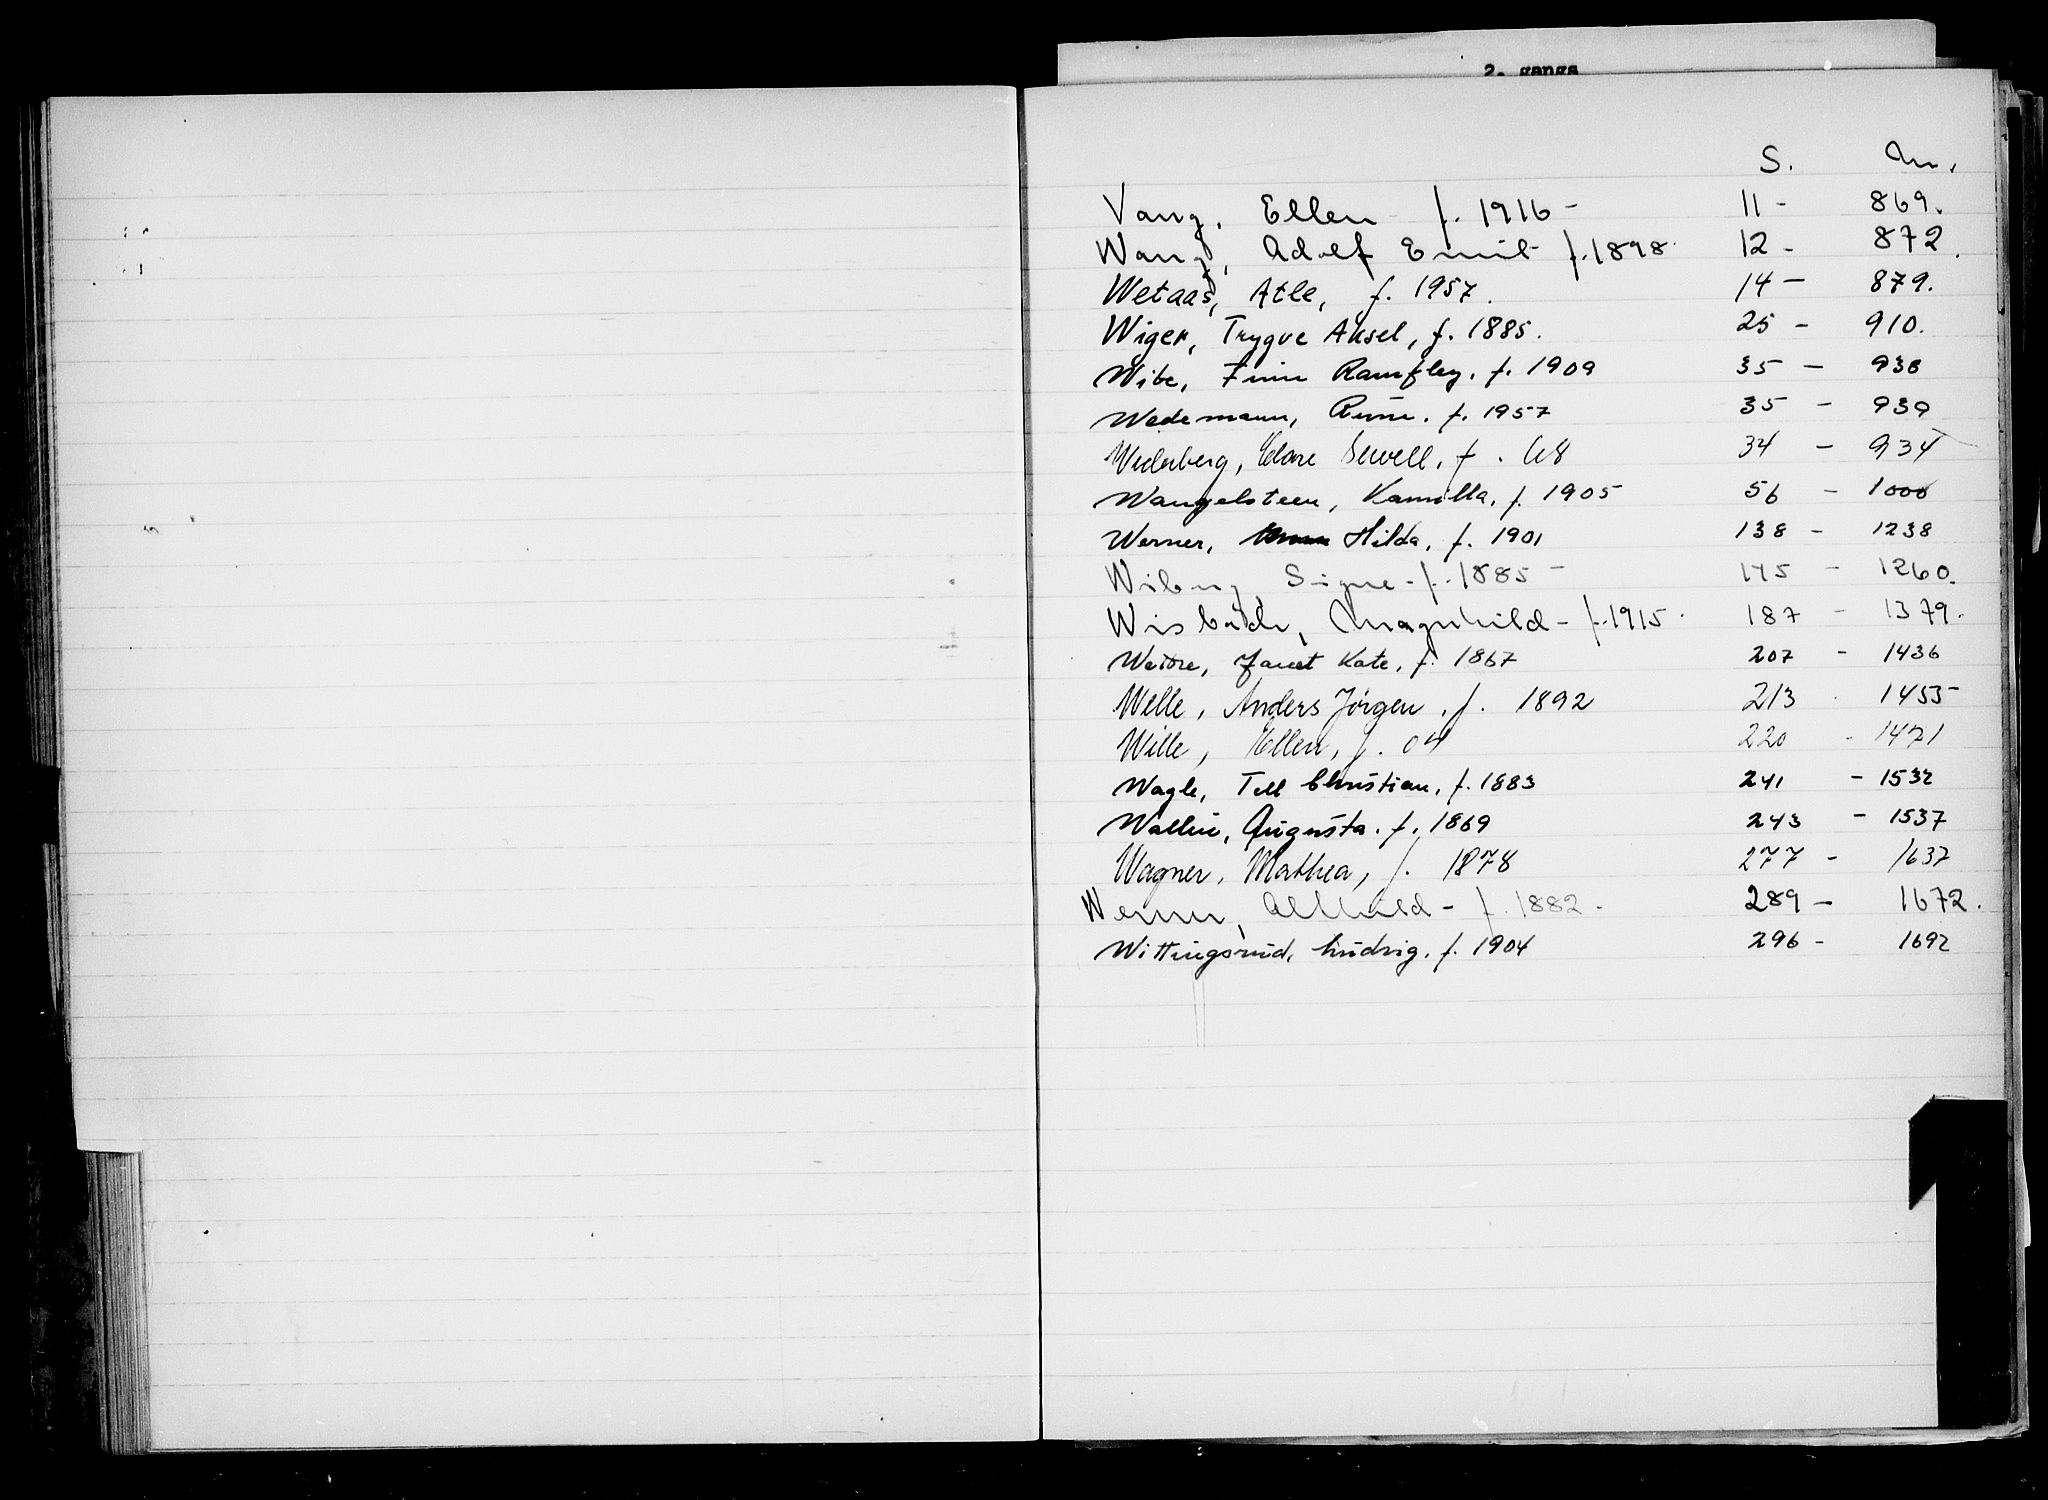 2. gangs
S. Nr.
Vang, Ellen f. 1916 - 11 - 869.
Wang, Adolf Emil f. 1898. 12 - 872.
Wetaas, Atle, f. 1957. 14 - 879.
Wiger, Trygve Aksel, f. 1885. 25 - 910.
Wibe, Finn f. 1909 35 - 938
Wedemann, Rune. f. 1957 35 - 939
Clare Sewell, f. 68 34 - 934
Wangelsteen, Kamilla, f. 1905 56 - 1000
Werner, Hilda, f. 1901 138 - 1238
Wiborg, Signe - f. 1885 - 145 - 1260.
Wisbech, Magnhild - f. 1915. 187 - 1379.
Janet Kate, f. 1867 207 - 1436
Welle, Anders Jörgen, f. 1892 213 - 1455
Wille, Ellen, f. 04 220 - 1471
Wagle, Tell Christian, f. 1883 241 - 1532
Wallin, Augusta. f. 1869 243 - 1537
Wagner, Mathea, f. 1878 277 - 1637
Werner, Alfhild - f. 1882 - 289 - 1672.
Wittingsrud, Ludvig. f. 1904 296 - 1692